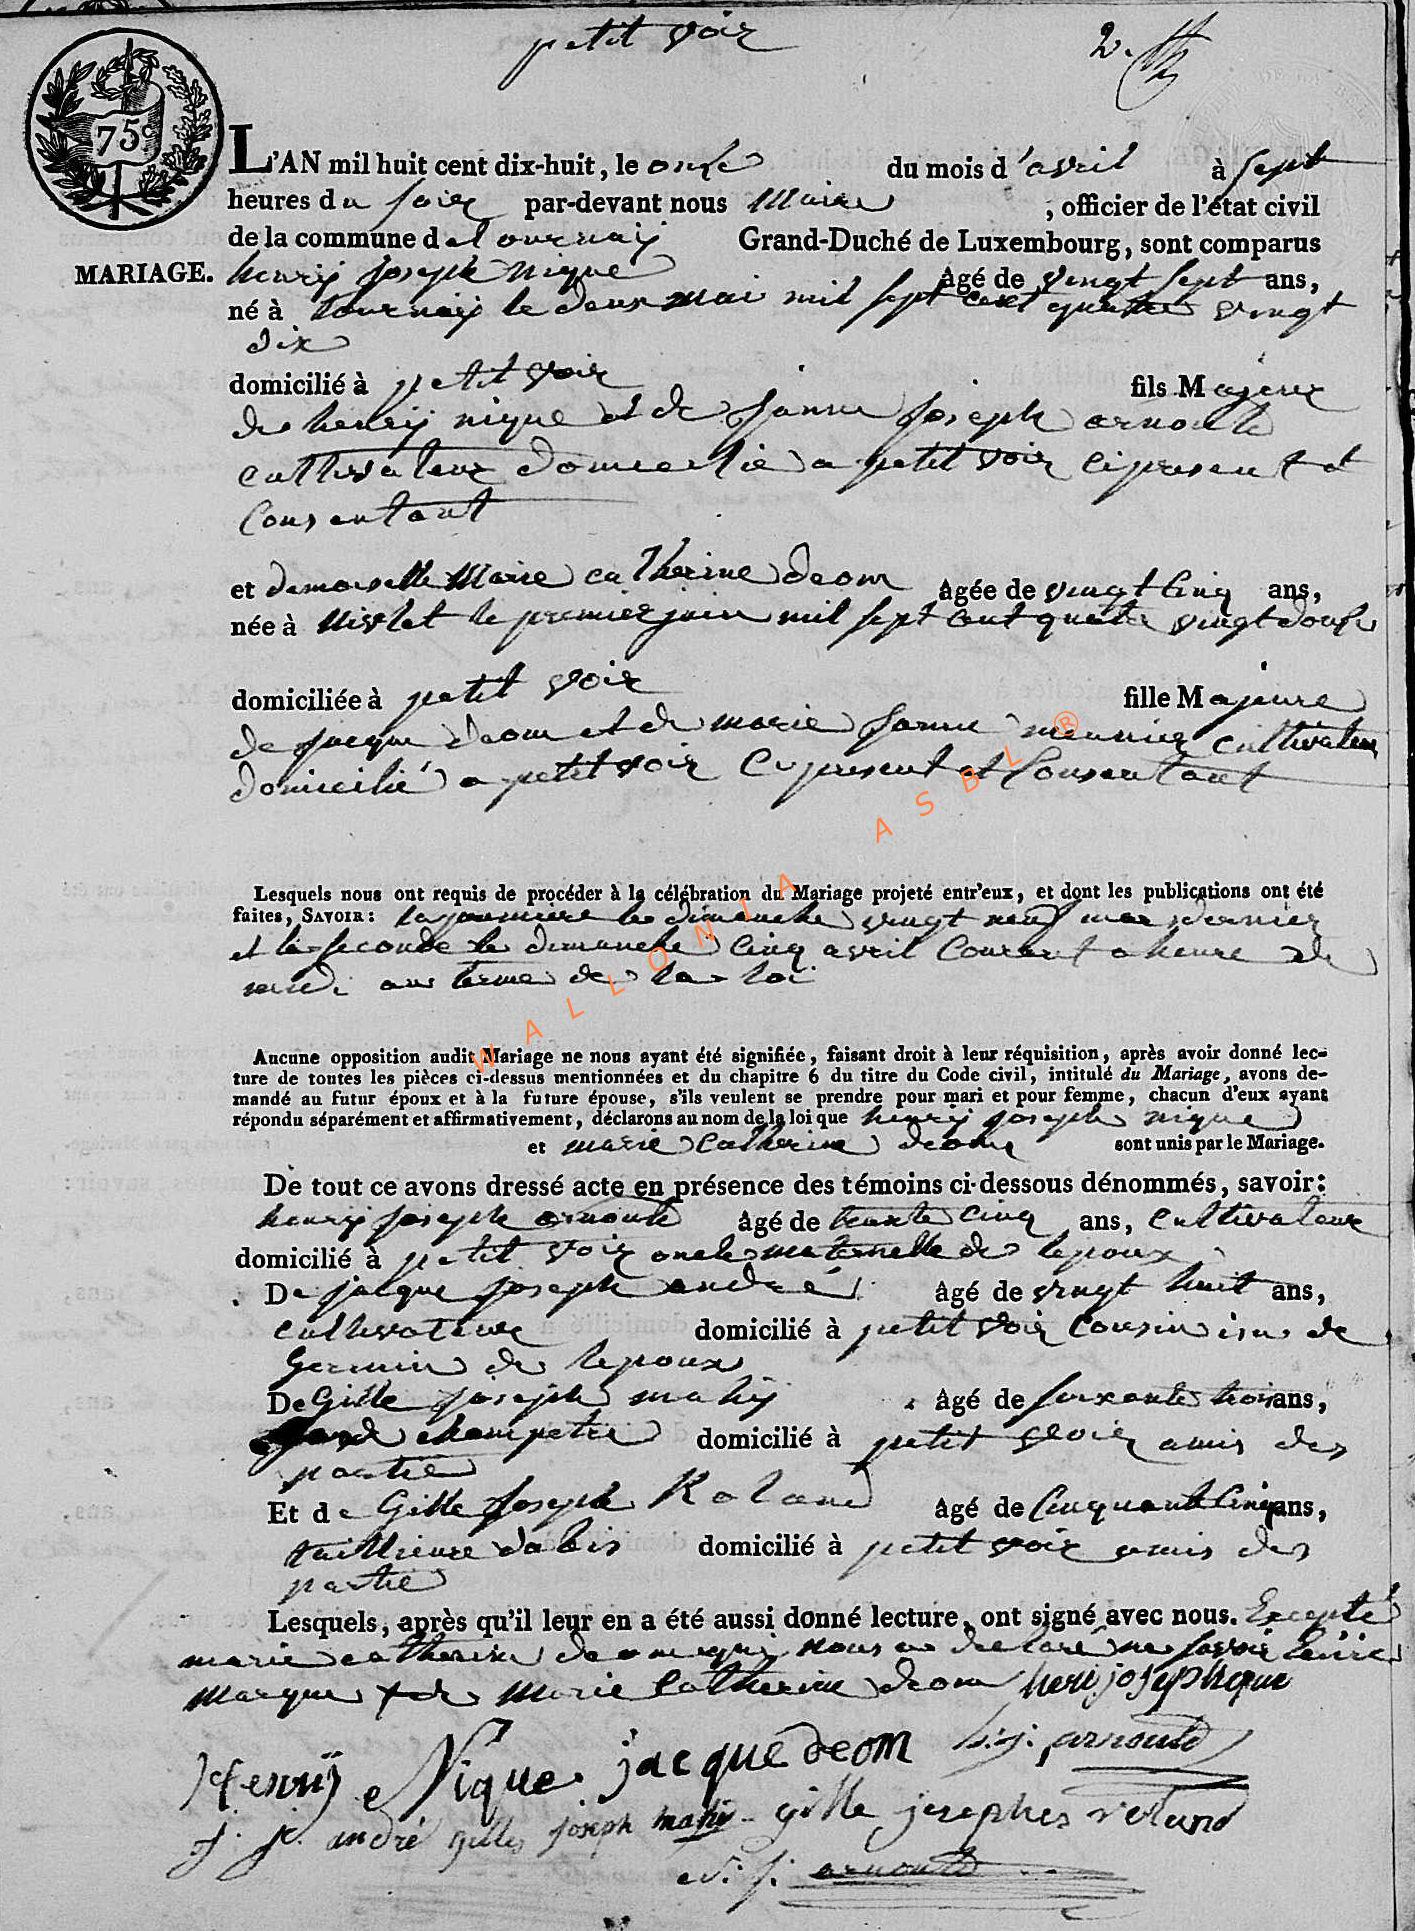 petit voir
2.
75c
L'AN mil huit cent dix-huit, le onze du mois d'avril à sept
heures du soir par-devant nous Maire ; officier de l'état civil
de la commune de tournay Grand-Duché de Luxembourg, sont comparus
MARIAGE. henry joseph nique âgé de vingt sept ans,
né à tournay le deux mai mil sept cent quatre vingt
dix
domicilié à petit voir fils Majeur
de henry nique et de janne joseph arnould
cultivateur domicilié a petit voir ci present et
Consentant
et demoiselle Marie catherine deom âgée de vingt Cinq ans,
née à le premier juin mil sept Cent quatre vingt douse
domiciliée à petit voir fille Majeure
de jacque deom et de marie janne meunier cultivateur
domicilié a petit voir Cy present et Consentant
Lesquels nous ont requis de procéder à la célébration du Mariage projeté entr'eux, et dont les publications ont été
faites, SAVOIR : la premiere le dimanche vingt neuf mar dernier
et la seconde le dimanche Cinq avril Courant a heure de
midi au terme de la loi
Aucune opposition audit Mariage ne nous ayant été signifiée, faisant droit à leur réquisition, après avoir donné lec-
ture de toutes les pièces ci-dessus mentionnées et du chapitre 6 du titre du Code civil, intitulé du Mariage, avons de-
mandé au futur époux et à la future épouse, s'ils veulent se prendre pour mari et pour femme, chacun d'eux ayant
répondu séparément et affirmativement, déclarons au nom de la loi que henry joseph nique
et marie Catherine deom sont unis par le Mariage.
De tout ce avons dressé acte en présence des témoins ci-dessous dénommés, savoir:
henry joseph arnould âgé de trente cinq ans, Cultivateur
domicilié à petit voir oncle maternelle de lepoux
De jacque joseph andré âgé de vingt huit ans,
cultivateur domicilié à petit voir Cousin isu de
Germin de lepoux
De Gille joseph mahy âgé de soixante trois ans,
garde champetre domicilié à petit voir amis des
partie
Et de Gille joseph Roland âgé de Cinquante Cinq ans,
taillieure dabis domicilié à petit voir amis des
partie
Lesquels, après qu'il leur en a été aussi donné lecture, ont signé avec nous. Excepté
marie catherine deom qui nous a declaré ne savoir
marque + de Marie Catherine deom heri joseph que
Henrÿ Nique. jacque deom h. j. arnould
j. j. andré gilles joseph mahy gille josephes roland
arnould
WALLONIA ASBL ®